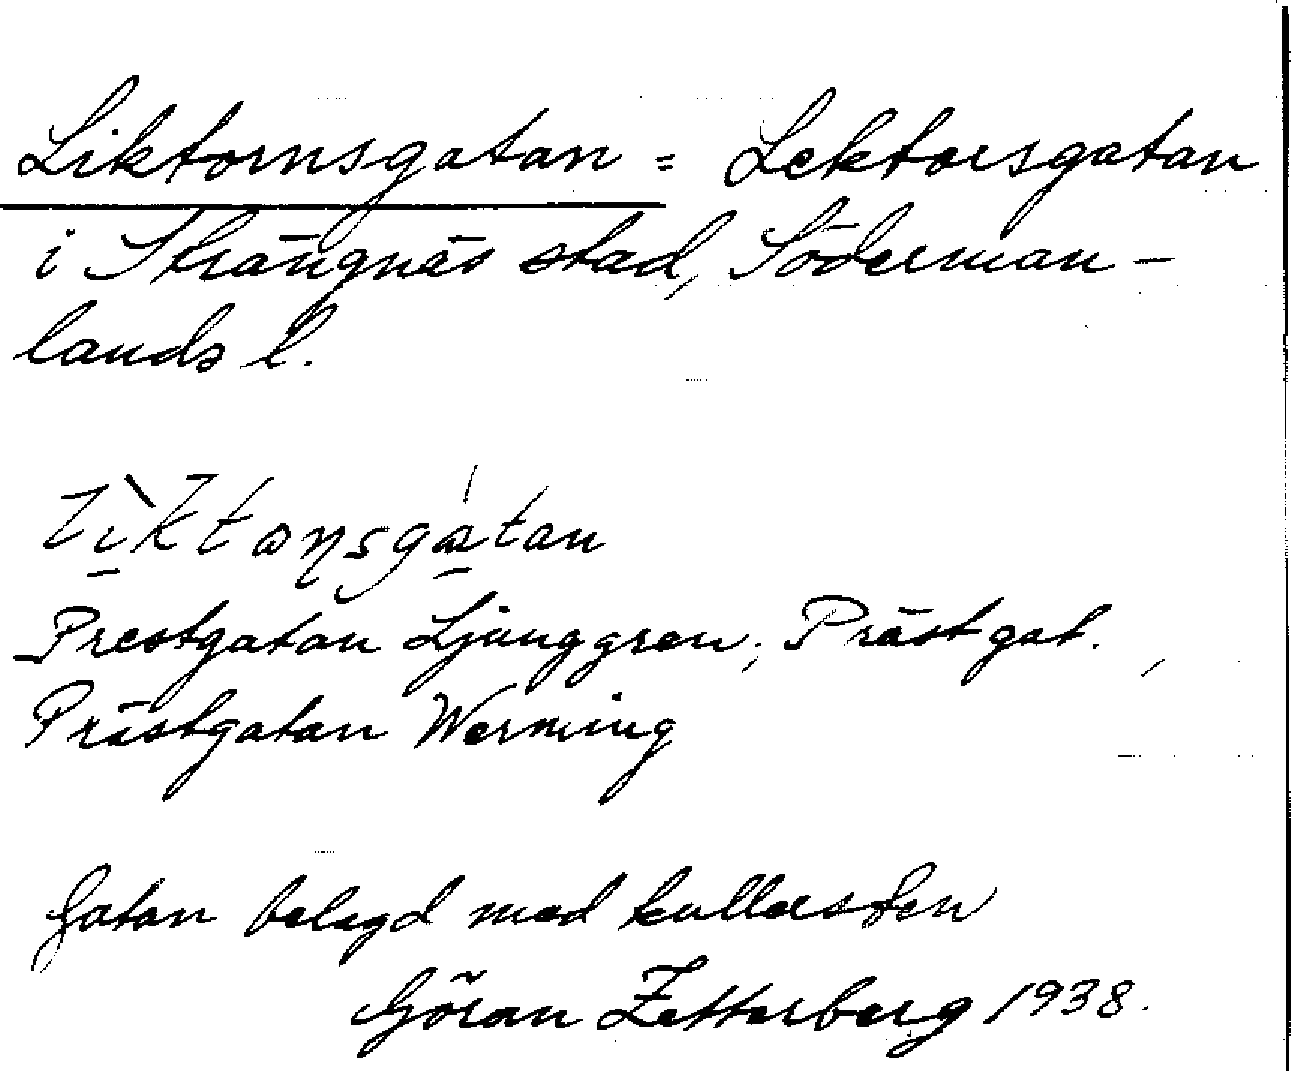 Liktornsgatan = Lektorsgatan
i Strängnäs stad, Söderman-
lands l.
Prestgatan Ljunggren; Prästgat.
Prästgatan Werming
Gatan belagd med kullersten
Göran Zetterberg 1938.